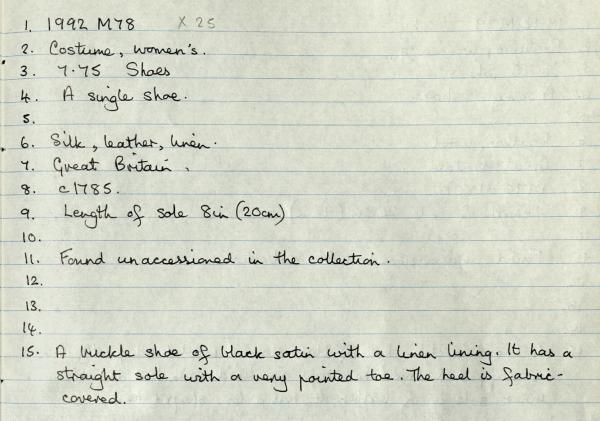 1. 1992 M78 X 25
2. Costume, women's.
3. 7.75 Shoes
4. A single shoe.
5.
6. Silk, leather, linen.
7. Great Britain.
8. c1785.
9. Length of sole 8in (20cm)
10.
11. Found unaccessioned in the collection.
12.
13.
14.
15. A buckle shoe of black satin with a linen lining. It has a
straight sole with a very pointed toe. The heel is fabric-
covered.